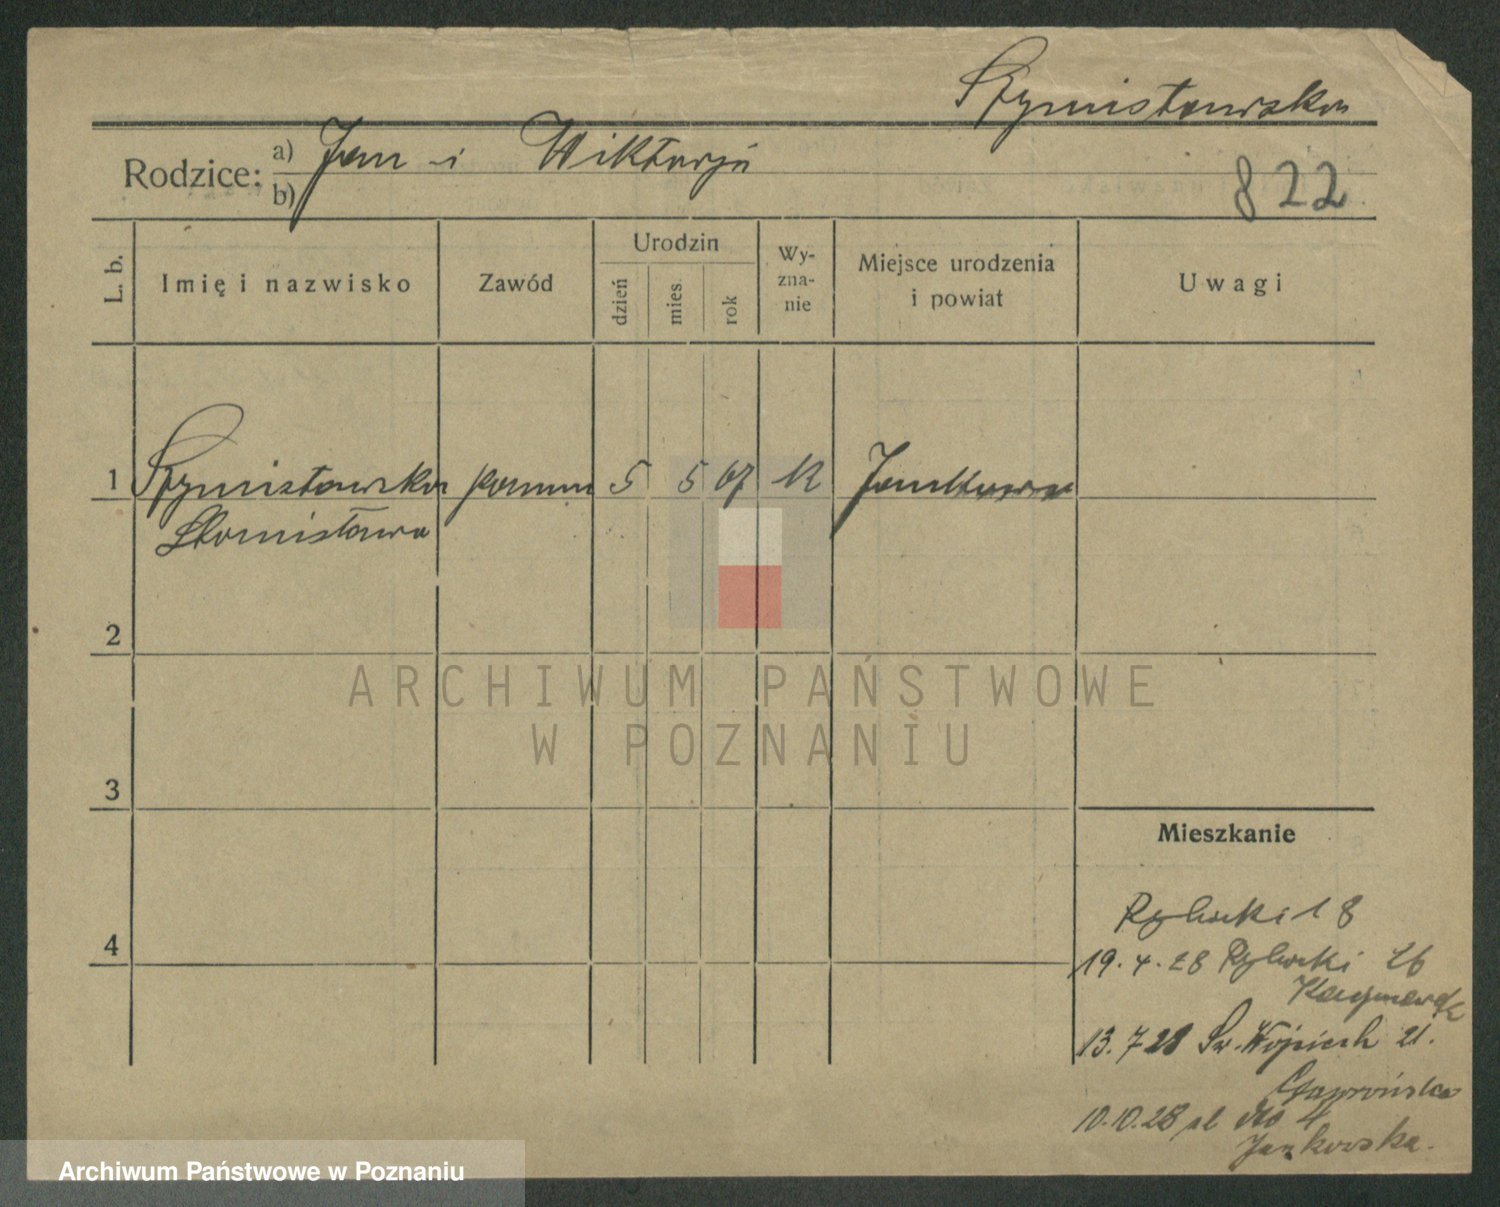 Szymisławska
Rodzice: a) Jan i Wiktorja
b)
822
L. b.
Imię i nazwisko
Zawód
Urodzin
dzień
mies.
rok
Wy-
zna-
nie
Miejsce urodzenia
i powiat
Uwagi
1 Szymisławska panna 5 5 07 K
Stanisława
2
ARCHIWUM PAŃSTWOWE
W POZNANIU
3
Mieszkanie
Rybaki 18
4
19.4.28 Rybaki 26
Kaczmarek
13.7.28 Św. Wojciech 21.
Gawrońska
10.10.28 4
Jankowska.
Archiwum Państwowe w Poznaniu